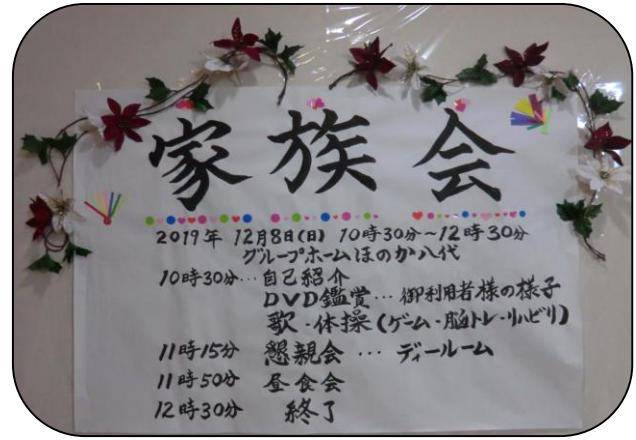 家族会
2019年 12月8日(日) 10時30分~12時30分
グループホームほのか八代
10時30分…自己紹介
DVD鑑賞…御利用者様の様子
歌・体操(ゲーム・脳トレ・リハビリ)
11時15分 懇親会…ディールーム
11時50分 昼食会
12時30分 終了